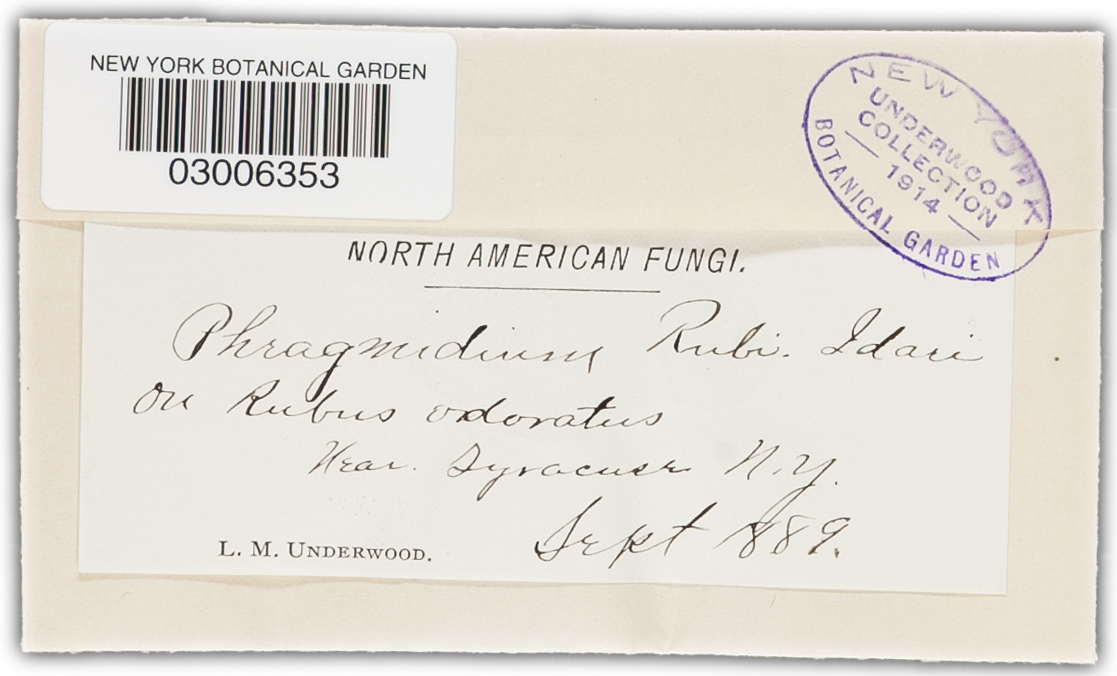 NEW YORK BOTANICAL GARDEN
03006353
NEW YORK
UNDERWOOD
COLLECTION
— 1914 —
BOTANICAL GARDEN
NORTH AMERICAN FUNGI.
Phragmidium Rubi. Idaei
On Rubus odoratus
Near. Syracuse N.Y.
Sept 1889.
L. M. UNDERWOOD.